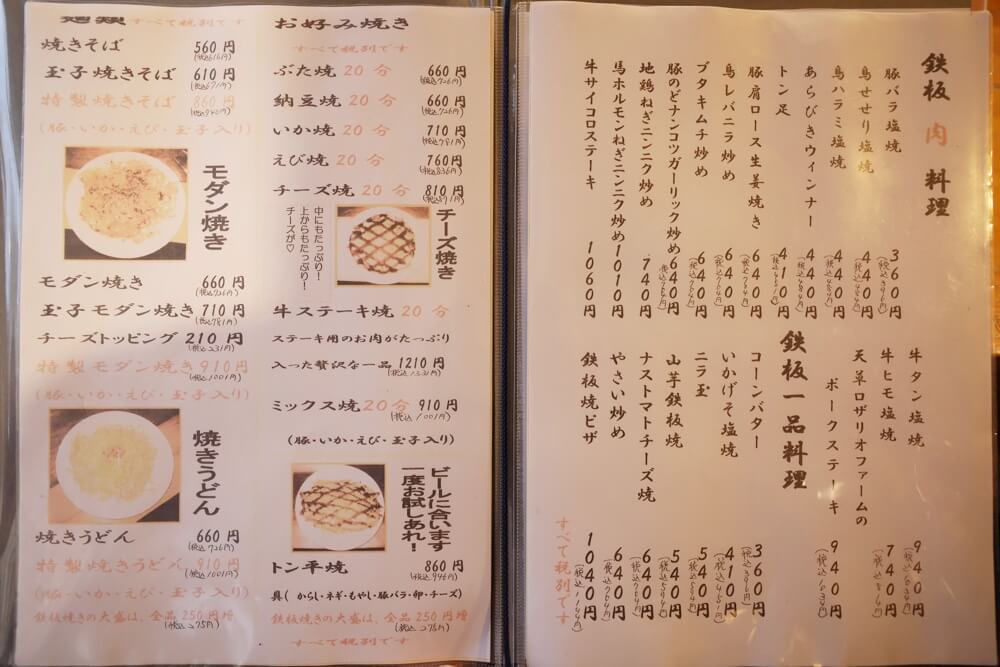 麺類 すべて税別です
焼きそば 560円
(税込616円)
玉子焼きそば 610円
(税込671円)
特製焼きそば 860円
(豚・いか・えび・玉子入り)
モダン焼き
モダン焼き 660円
(税込726円)
玉子モダン焼き 710円
(税込781円)
チーズトッピング 210円
(税込231円)
特製モダン焼き 910円
(税込1001円)
(豚・いか・えび・玉子入り)
焼きうどん
焼きうどん 660円
(税込726円)
特製焼きうどん 910円
(税込1001円)
(豚・いか・えび・玉子入り)
鉄板焼きの大盛は、全品250円増
(税込275円)
お好み焼き
すべて税別です
ぶた焼 20分 660円
(税込726円)
納豆焼 20分 660円
(税込726円)
いか焼 20分 710円
(税込781円)
えび焼 20分 760円
(税込836円)
チーズ焼 20分 810円
(税込891円)
中にもたっぷり!
上からもたっぷり!
チーズが♡
チーズ焼き
牛ステーキ焼 20分
ステーキ用のお肉がたっぷり
入った贅沢な一品 1210円
(税込1331円)
ミックス焼 20分 910円
(税込1001円)
(豚・いか・えび・玉子入り)
ビールに合います
一度お試しあれ!
トン平焼 860円
(税込946円)
具( からし・ネギ・もやし・豚バラ・卵・チーズ)
鉄板焼きの大盛は、全品250円増
(税込275円)
すべて税別です
鉄板 肉 料理
豚バラ塩焼 360円
(税込396円)
鳥せせり塩焼 440円
鳥ハラミ塩焼 440円
(税込484円)
あらびきウィンナー 440円
(税込484円)
トン足 410円
(税込451円)
豚肩ロース生姜焼き 640円
(税込704円)
鳥レバニラ炒め 640円
(税込704円)
ブタキムチ炒め 640円
(税込704円)
豚のどナンコツガーリック炒め 640円
(税込704円)
地鶏ねぎニンニク炒め 740円
馬ホルモンねぎニンニク炒め 1010円
牛サイコロステーキ 1060円
牛タン塩焼 940円
牛ヒモ塩焼 740円
天草ロザリオファームの
ポークステーキ 940円
鉄板一品料理
コーンバター 360円
(税込396円)
いかげそ塩焼 410円
(税込451円)
ニラ玉 540円
山芋鉄板焼 540円
ナストマトチーズ焼 640円
(税込704円)
やさい炒め 640円
(税込704円)
鉄板焼ピザ 1040円
(税込1144円)
すべて税別です